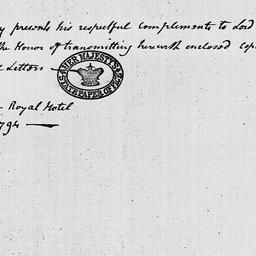 y presents his respectful compliments to Lord
the Honor of transmitting herewith enclosed Cop
d Letters —
HER MAJESTY'S
STATE PAPER OFFICE
Royal Hotel
794 —